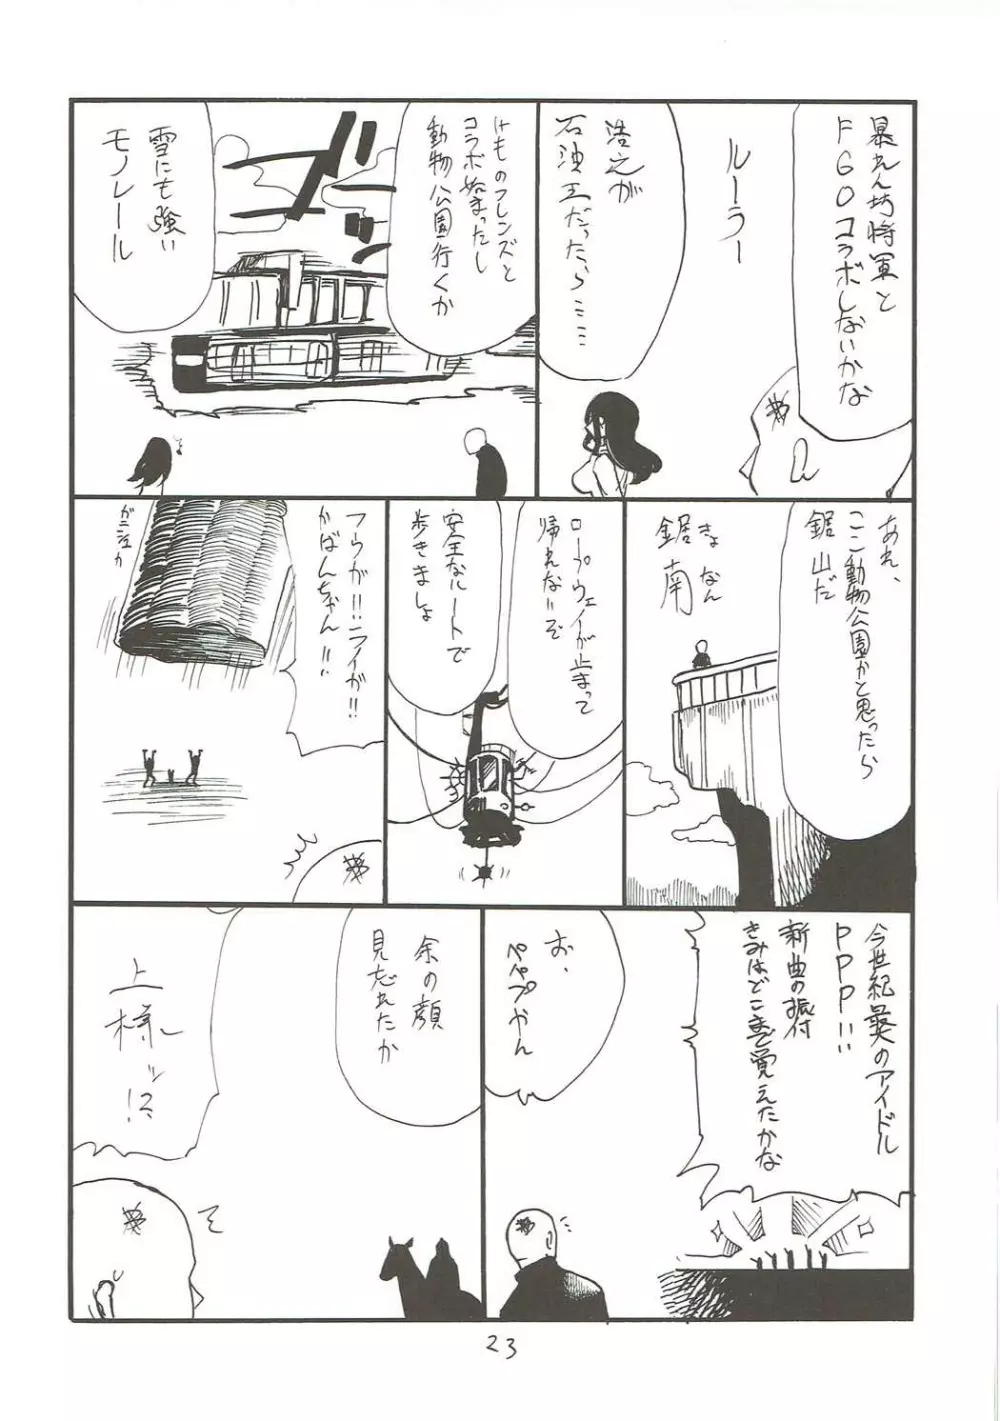 暴れん坊将軍と
FGOコラボしないかな
ルーラー
浩之が
石油王だったら……
けものフレンズと
コラボ始まったし
動物公園行くか
雪にも強い
モノレール
あれ、
ここ動物公園かと思ったら
鋸山だ
きょなん
鋸南
ロープウェイが止まって
帰れないぞ
安全なルートで
歩きましょ
フウが!!ライが!!
かばんちゃん!!
ガニュカ
今世紀最のアイドル
PPP!!
新曲の振付
きみはどこまで覚えたかな
お、
ペペプやん
余の顔
見忘れたか
上様ッ!?
そ
23